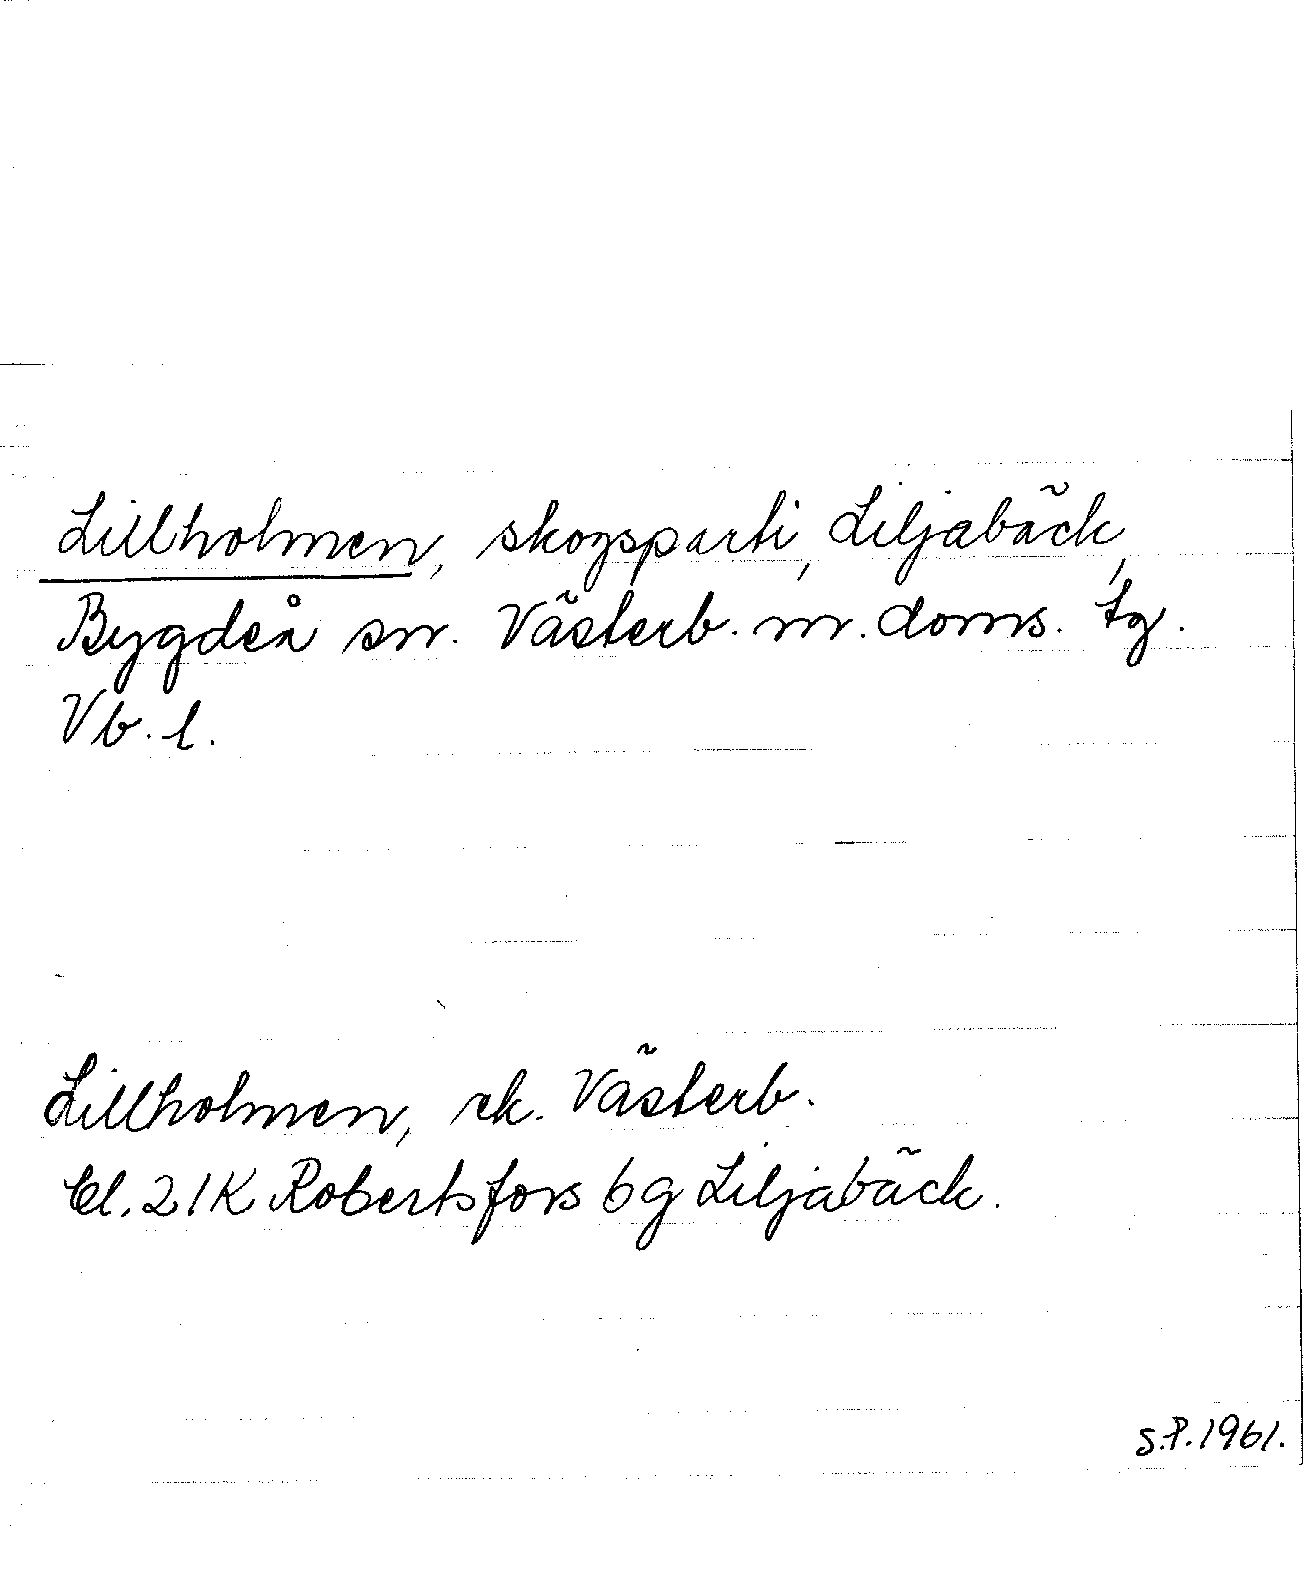 Lillholmen, skogsparti, Liljabäck,
Bygdeå sn. Västerb. m. doms. tg.
Vb. l.
Lillholmen, ek. Västerb.
bl. 21K Robertsfors 6g Liljabäck.
S.P. 1961.